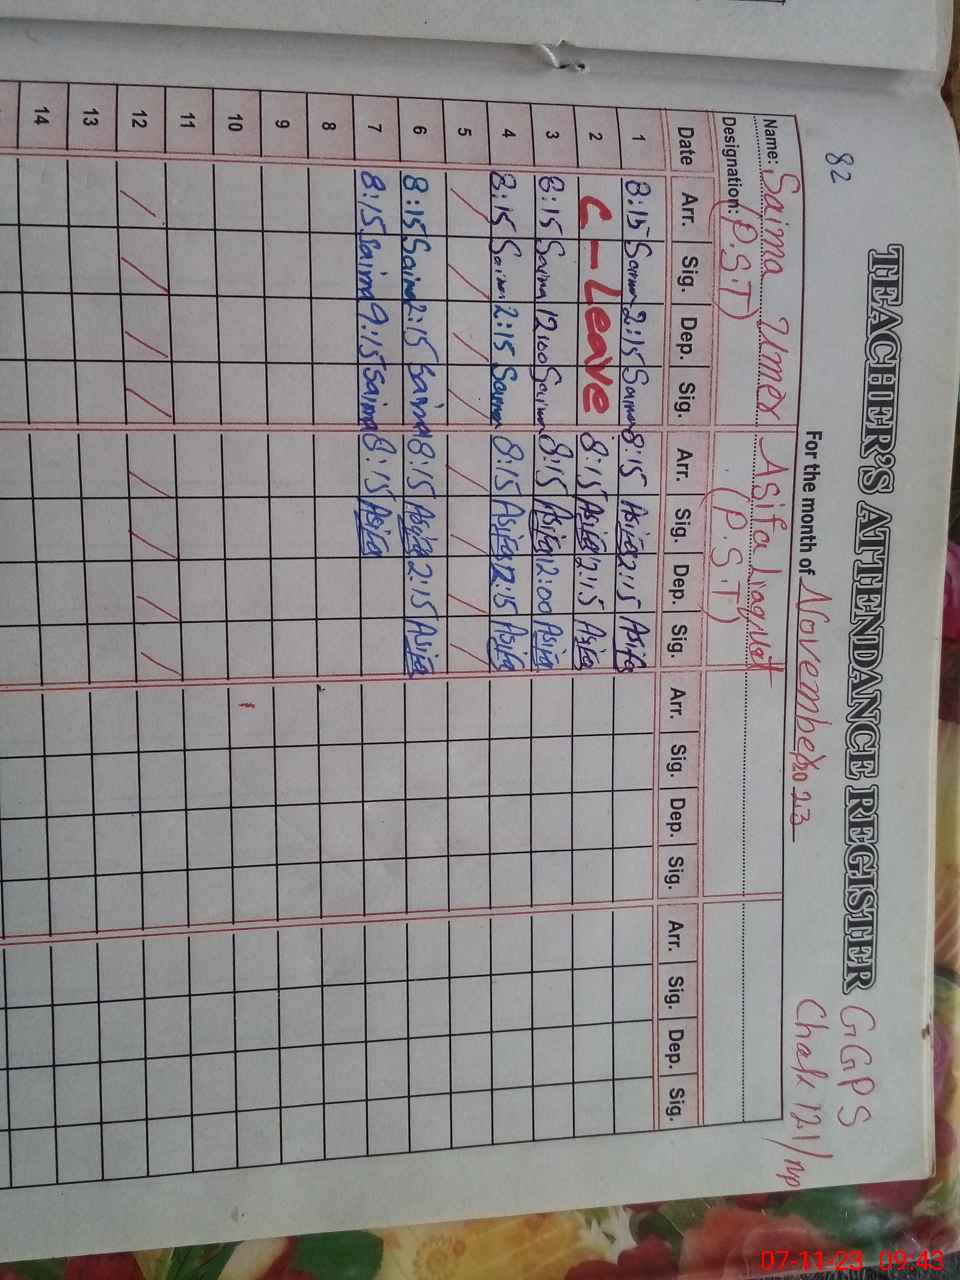 82
TEACHER'S ATTENDANCE REGISTER GGPS
For the month of November 2023 Chak 121/np
Name: Saima Umer Asifa Liaquat
Designation: (P.S.T) (P.S.T)
Date Arr. Sig. Dep. Sig. Arr. Sig. Dep. Sig. Arr. Sig. Dep. Sig. Arr. Sig. Dep. Sig.
1 8:15 Saima 2:15 Saima 8:15 Asifa 2:15 Asifa
2 C-Leave 8:15 Asifa 2:15 Asifa
3 8:15 Saima 12:00 Saima 8:15 Asifa 12:00 Asifa
4 8:15 Saima 2:15 Saima 8:15 Asifa 2:15 Asifa
5
6 8:15 Saima 2:15 Saima 8:15 Asifa 2:15 Asifa
7 8:15 Saima 9:15 Saima 8:15 Asifa
8
9
10
11
12
13
14
07-11-23 09:43